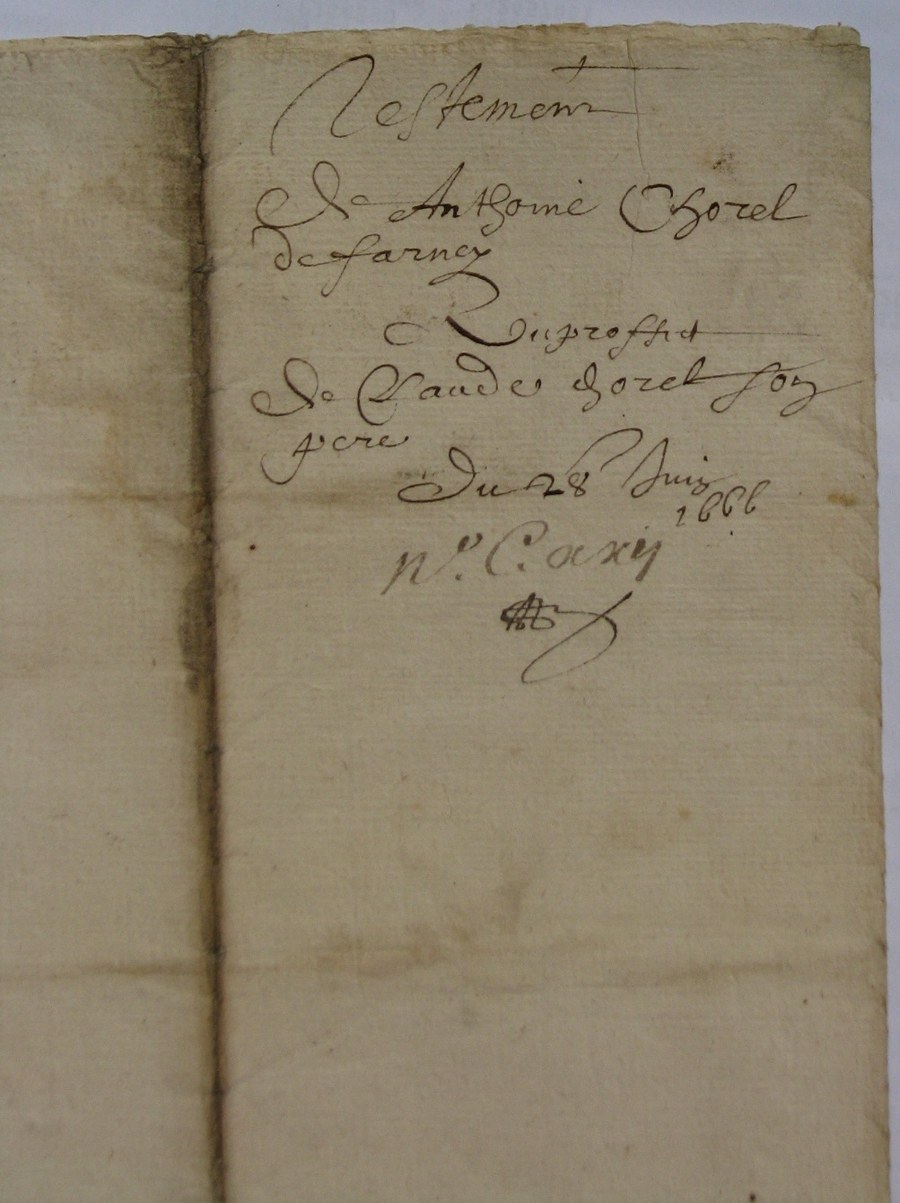 Testement
de Anthoine Chorel
de farney
Au proffict
de Claude chorel son
pere
Du 28 Juin
1666
N°. C. axij